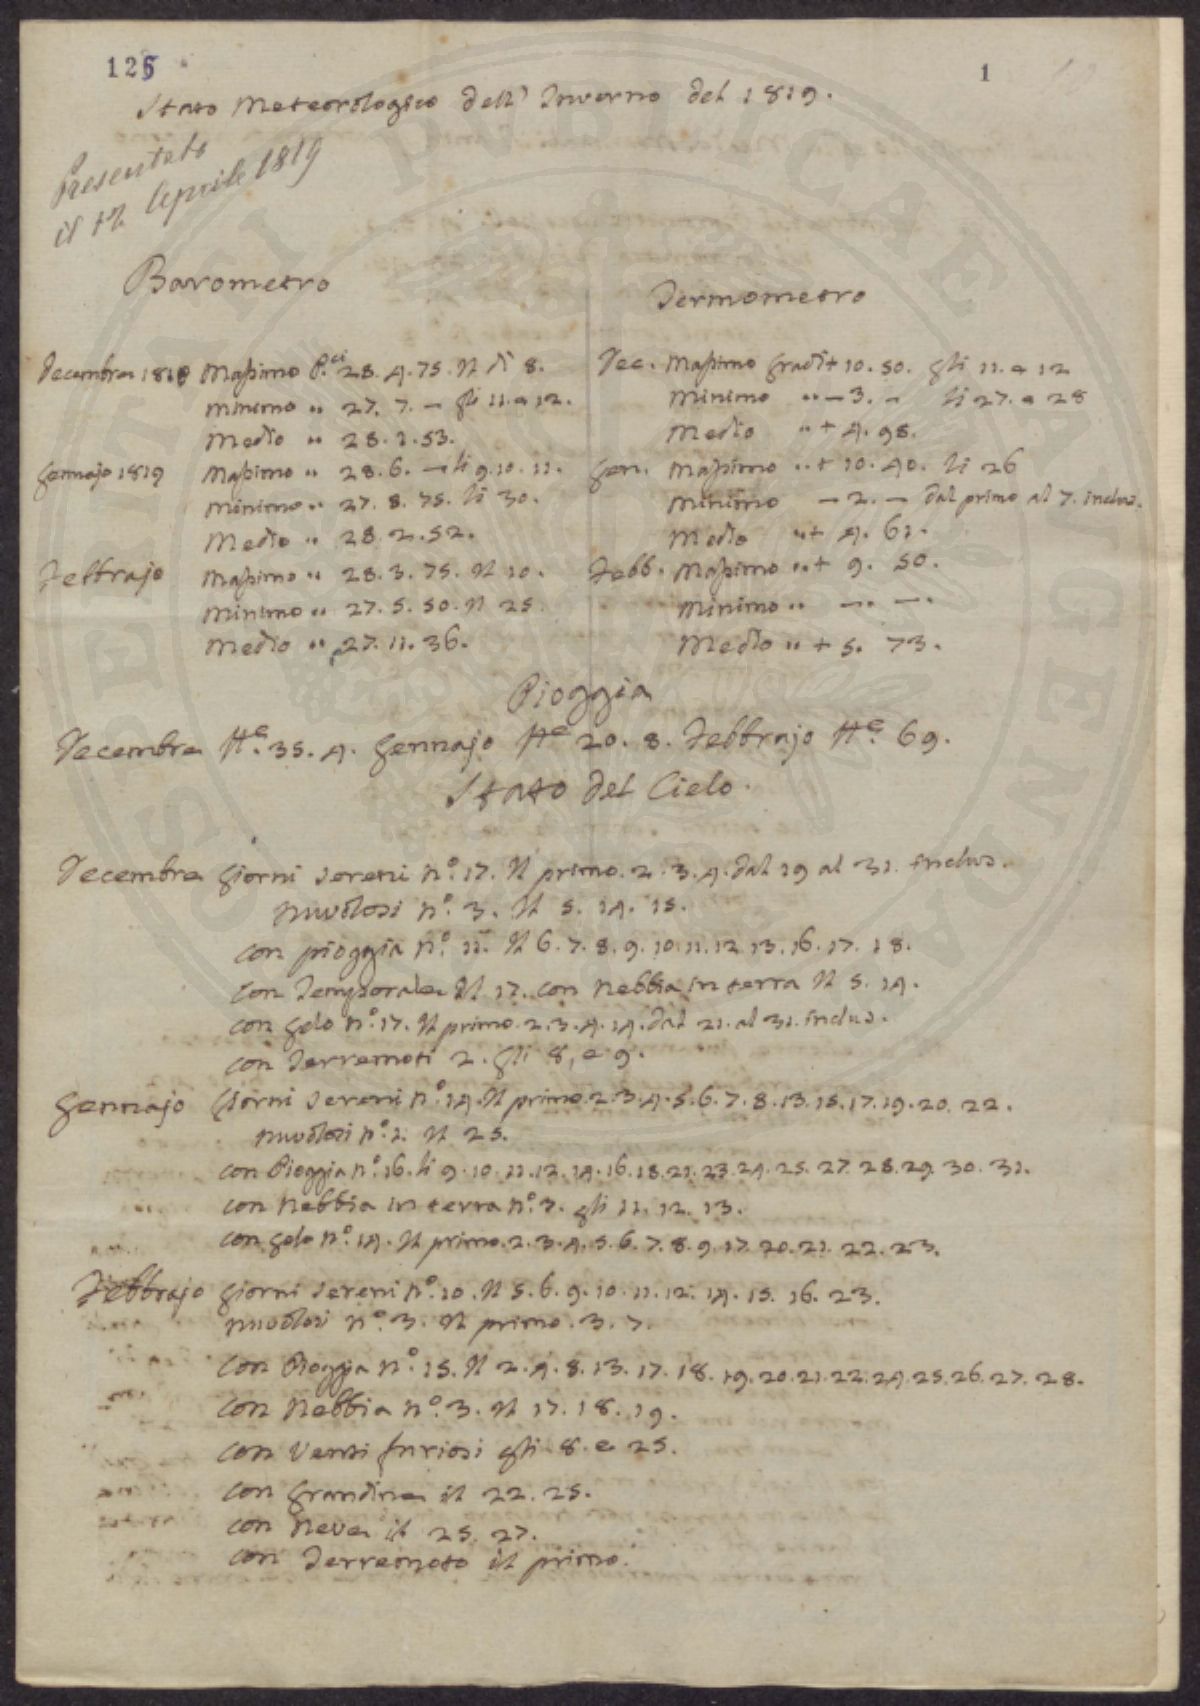 125
1
Stato Meteorologico dell' Inverno del 1819.
Presentato
il 12 Aprile 1819
Barometro
Termometro
Decembre 1818 Massimo P.ci 28. 4. 75. Il dì 8.
Minimo " 27. 7. — gli 11. e 12.
Medio " 28. 1. 53.
Gennajo 1819 Massimo " 28. 6. — li 9. 10. 11.
Minimo " 27. 8. 75. li 30.
Medio " 28. 2. 52.
Febbrajo Massimo " 28. 3. 75. Il 10.
Minimo " 27. 5. 50. Il 25
Medio " 27. 11. 36.
Dec. Massimo Gradi + 10. 50. gli 11. e 12
Minimo " — 3. — li 27. e 28
Medio " + 4. 98.
Gen. Massimo " + 10. 40. li 26
Minimo — 2. — dal primo al 7. inclus.
Medio " + 4. 61.
Febb. Massimo " + 9. 50.
Minimo " —. —.
Medio " + 5. 73.
Pioggia
Decembre H.e 35. 4. Gennajo H.e 20. 8. Febbrajo H.e 69.
Stato del Cielo.
Decembre Giorni sereni N.o 17. Il primo. 2. 3. 4. dal 19 al 31. inclus.
Nuvolosi N.o 3. Il 5. 14. 15.
Con pioggia N.o 11. Il 6. 7. 8. 9. 10. 11. 12. 13. 16. 17. 18.
Con Temporale Il 17. con Nebbia in terra Il 5. 14.
Con gelo N.o 17. Il primo. 2. 3. 4. 14. dal 21. al 31. inclus.
Con Terremoti 2. gli 8, e 9.
Gennajo Giorni sereni N.o 14. Il primo. 2. 3. 4. 5. 6. 7. 8. 13. 15. 17. 19. 20. 22.
Nuvolosi N.o 1. Il 25.
Con Pioggia N.o 16. li 9. 10. 11. 12. 14. 16. 18. 21. 23. 24. 25. 27. 28. 29. 30. 31.
Con Nebbia in terra N.o 3. gli 11. 12. 13.
Con gelo N.o 14. Il primo. 2. 3. 4. 5. 6. 7. 8. 9. 17. 20. 21. 22. 23.
Febbrajo Giorni sereni N.o 10. Il 5. 6. 9. 10. 11. 12. 14. 15. 16. 23.
Nuvolosi N.o 3. Il primo. 3. 7.
Con Pioggia N.o 15. Il 2. 4. 8. 13. 17. 18. 19. 20. 21. 22. 24. 25. 26. 27. 28.
Con Nebbia N.o 3. Il 17. 18. 19.
Con Venti furiosi gli 8. e 25.
Con Grandine il 22. 25.
Con Neve il 25. 27.
Con Terremoto il primo.